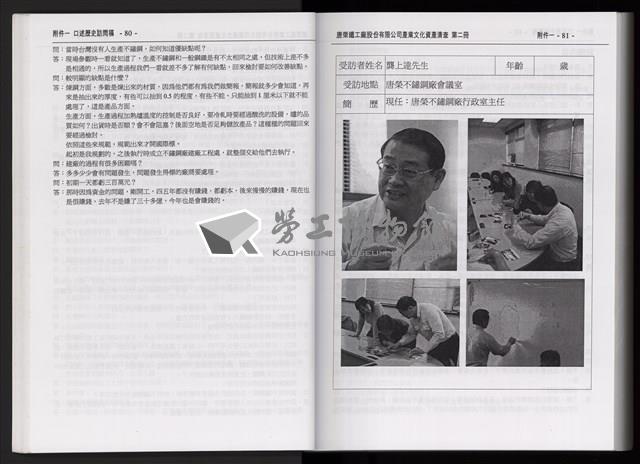 附件一 口述歷史訪問稿 - 80 -
問:當時台灣沒有人生產不鏽鋼,如何知道優缺點呢?
答:現場參觀時一看就知道了,生產不鏽鋼和一般鋼鐵是有不太相同之處,但技術上差不多
是相通的,所以生產過程我們一看就差不多了解有何缺點,回來檢討要如何改善缺點。
問:較明顯的缺點是什麼?
答:煉鋼方面,多數是煉出來的材質,因為他們都有為我們做簡報,簡報就多少會知道,再
來是抽出來的厚度,有些可以抽到 0.5 的程度,有些不能,只能抽到 1 厘米以下就不能
處理了,這是產品方面。
生產方面,生產過程加熱爐溫度的控制是否良好,要冷軋時要經過酸洗的設備,爐的品
質如何?出貨時是否順?會不會阻塞?後面空地是否足夠儲放產品?這種種的問題回來
要經過檢討。
依照這些來規範,規範出來才開國際標。
起初是我規劃的,之後執行時成立不鏽鋼廠建廠工程處,就整個交給他們去執行。
問:建廠的過程有很多困難嗎?
答:多多少少會有問題發生,問題發生得標的廠商要處理。
問:初期一天都虧三百萬元?
答:那時因為資金的問題,剛開工,四五年都沒有賺錢,都虧本,後來慢慢的賺錢,現在也
是很賺錢,去年不是賺了三十多億,今年也是會賺錢的。
唐榮鐵工廠股份有限公司產業文化資產清查 第二冊 附件一 - 81 -
受訪者姓名 龔上達先生 年齡 歲
受訪地點 唐榮不鏽鋼廠會議室
簡 歷 現任:唐榮不鏽鋼廠行政室主任
勞工博物館
KAOHSIUNG MUSEUM OF LABOR